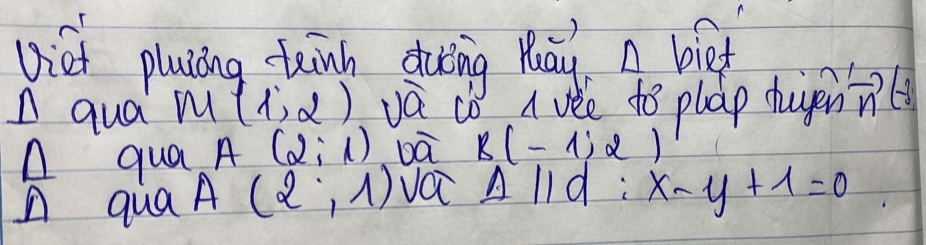 Viết phương trình đường thẳng Δ biết
Δ qua M (1; 2) và có 1 véc tơ pháp tuyến n⃗
Δ qua A (2; 1) và B(-1; 2)
Δ qua A (2; 1) và Δ // d : x - y + 1 = 0.